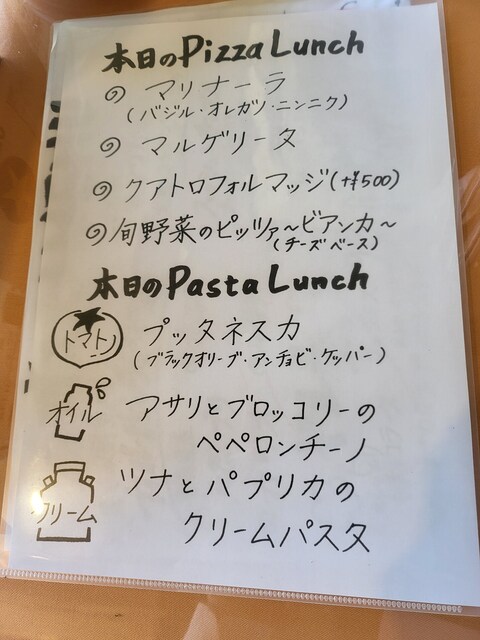 本日のPizza Lunch
マリナーラ
(バジル・オレガノ・ニンニク)
マルゲリータ
クアトロフォルマッジ(+¥500)
旬野菜のピッツァ～ビアンカ～
(チーズベース)
本日のPasta Lunch
トマト プッタネスカ
(ブラックオリーブ・アンチョビ・ケッパー)
オイル アサリとブロッコリーの
ペペロンチーノ
クリーム ツナとパプリカの
クリームパスタ